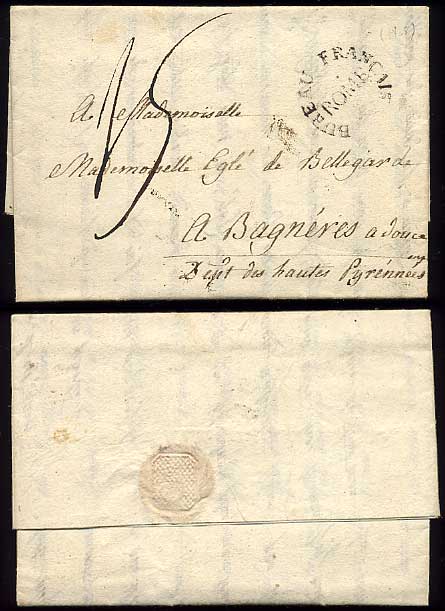 15
BUREAU FRANÇAIS
ROME
A Mademoiselle
Mademoiselle Eglé de Bellegarde
A Bagnéres a douce
Dept des hautes Pyrénnées